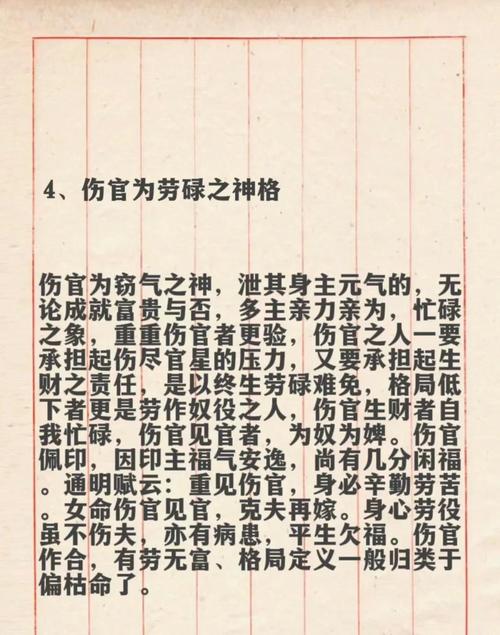 4、伤官为劳碌之神格
伤官为窃气之神，泄其身主元气的，无
论成就富贵与否，多主亲力亲为，忙碌
之象，重重伤官者更验，伤官之人一要
承担起伤尽官星的压力，又要承担起生
财之责任，是以终生劳碌难免，格局低
下者更是劳作奴役之人，伤官生财者自
我忙碌，伤官见官者，为奴为婢。伤官
佩印，因印主福气安逸，尚有几分闲福
。通明赋云：重见伤官，身必辛勤劳苦
。女命伤官见官，克夫再嫁。身心劳役
虽不伤夫，亦有病患，平生欠福。伤官
作合，有劳无富、格局定义一般归类于
偏枯命了。